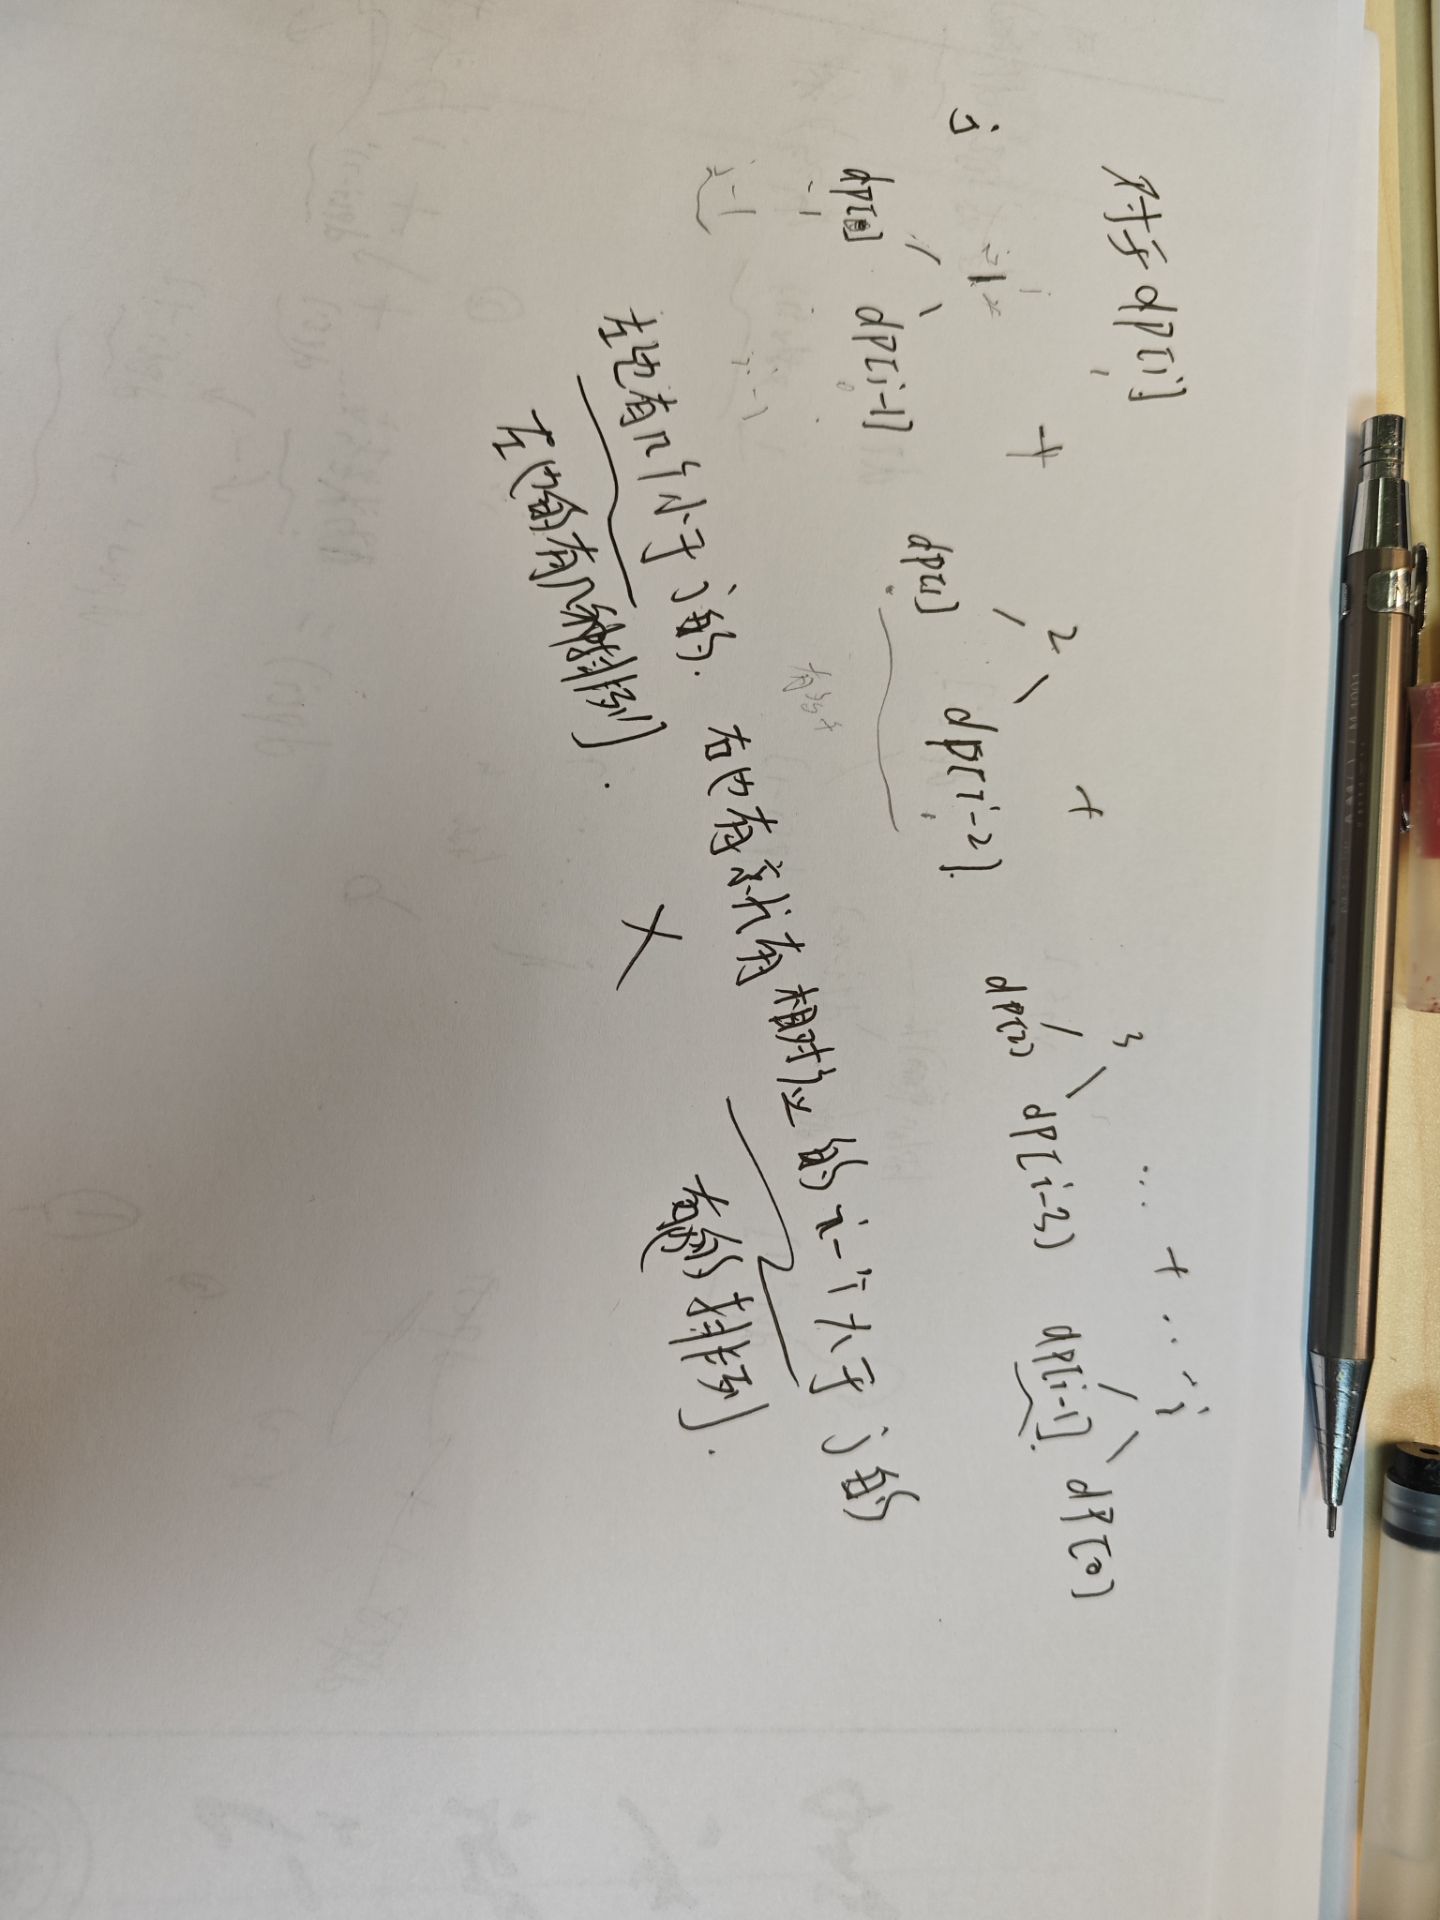 对于dp[i]
j
i=1 + 2 + 3 ... + ... i
dp[0] dp[i-1] dp[1] dp[i-2] dp[2] dp[i-3] dp[i-1] dp[0]
左边有几个小于j的. 右边有就有相对应的 大于j的
左边的有几种排列. × 右边的排列.
j-1